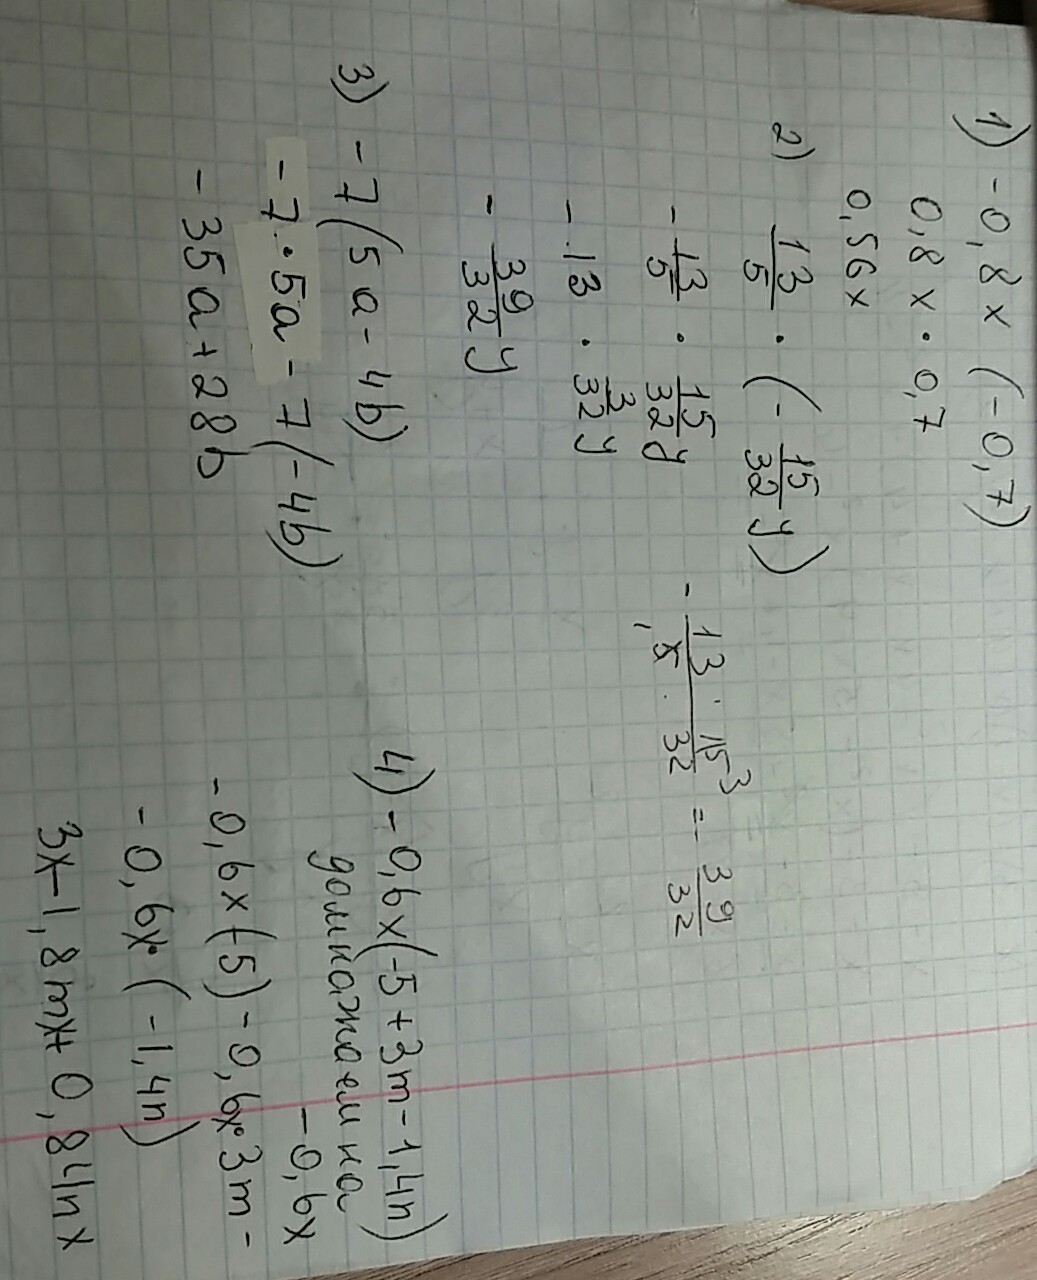 1) -0,8x (-0,7)
0,8x · 0,7
0,56x
2) 13/5 · (- 15/32 y)
- 13/5 · 15/32 y
- 13 · 3/32 y
- 39/32 y
- 13 · 15 3 / 1 5 · 32 = - 39/32
3) -7(5a-4b)
-7·5a-7(-4b)
-35a+28b
4) -0,6x(-5+3m-1,4n)
домножаем на
-0,6x
-0,6x(-5)-0,6x·3m-
-0,6x·(-1,4n)
3x-1,8mx+0,84nx